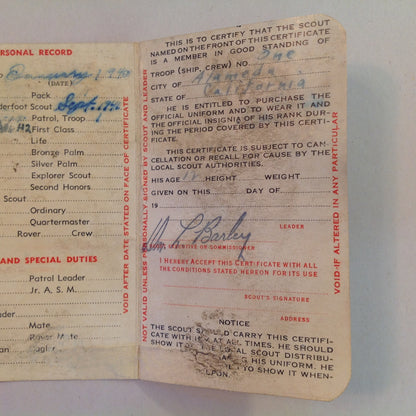 ERSONAL RECORD
1940
(DATE)
Pack
derfoot Scout Sept.
Patrol, Troop
First Class
Life
Bronze Palm
Silver Palm
Explorer Scout
Second Honors
Scout
Ordinary
Quartermaster
Rover Crew
AND SPECIAL DUTIES
Patrol Leader
Jr. A. S. M.
Mate
Rover Mate
VOID AFTER DATE STATED ON FACE OF CERTIFICATE
NOT VALID UNLESS PERSONALLY SIGNED BY SCOUT AND LEADER
THIS IS TO CERTIFY THAT THE SCOUT
NAMED ON THE FRONT OF THIS CERTIFICATE
IS A MEMBER IN GOOD STANDING OF
TROOP (SHIP, CREW) NO. One
CITY OF Alameda
STATE OF California
HE IS ENTITLED TO PURCHASE THE
OFFICIAL UNIFORM AND TO WEAR IT AND
THE OFFICIAL INSIGNIA OF HIS RANK DUR-
ING THE PERIOD COVERED BY THIS CERTI-
FICATE.
THIS CERTIFICATE IS SUBJECT TO CAN-
CELLATION OR RECALL FOR CAUSE BY THE
LOCAL SCOUT AUTHORITIES.
HIS AGE HEIGHT WEIGHT
GIVEN ON THIS DAY OF
19
LEADER
Barley
EXECUTIVE OR COMMISSIONER
I HEREBY ACCEPT THIS CERTIFICATE WITH ALL
THE CONDITIONS STATED HEREON FOR ITS USE
SCOUT'S SIGNATURE
ADDRESS
NOTICE
THE SCOUT SHOULD CARRY THIS CERTIFI-
CATE WITH HIM AT ALL TIMES. HE SHOULD
SHOW IT LOCAL SCOUT DISTRIBU-
ING HIS UNIFORM. HE
TO SHOW IT WHEN-
UPON.
VOID-IF ALTERED IN ANY PARTICULAR